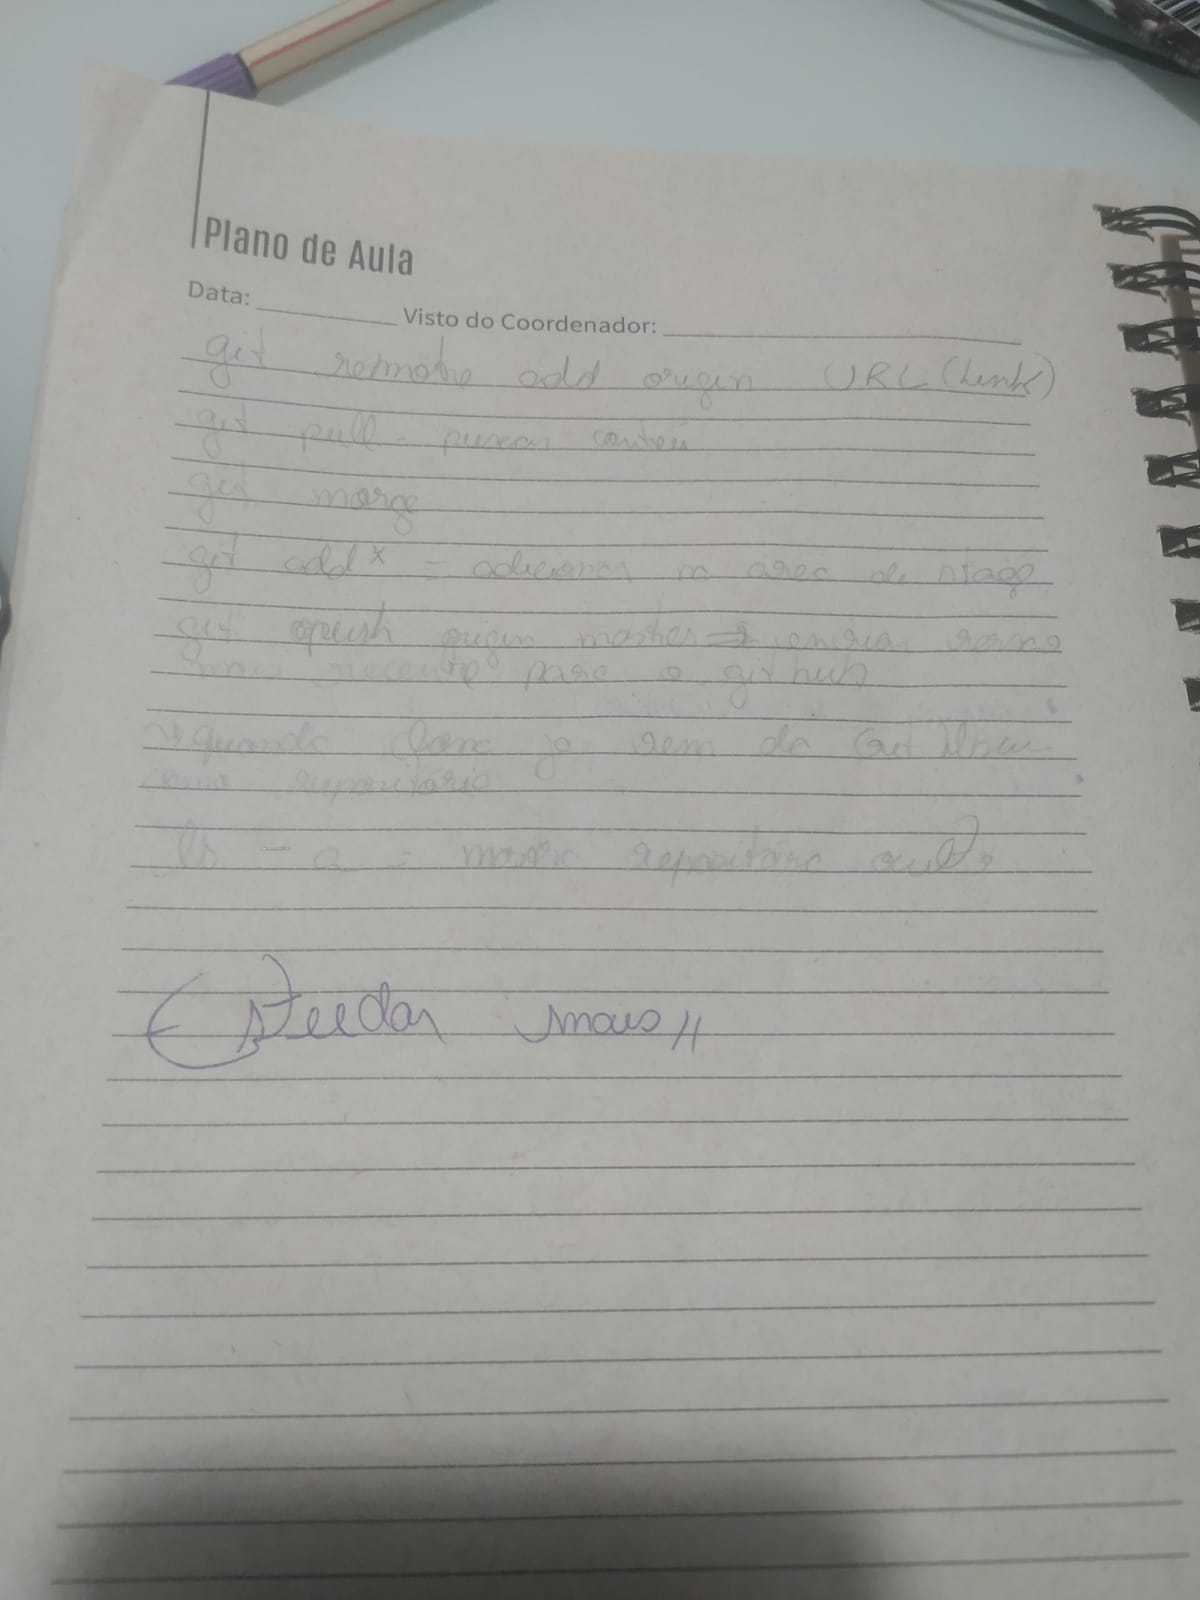 Plano de Aula
Data: Visto do Coordenador:
git remote add origin URL (Link)
git pull - puxar
git marge
git add * = adicionar na area de
git push origin master → enviar
recente para o github
quando clona ja vem da
como repositório
ls - a = mostra repositório
Estudar mais //